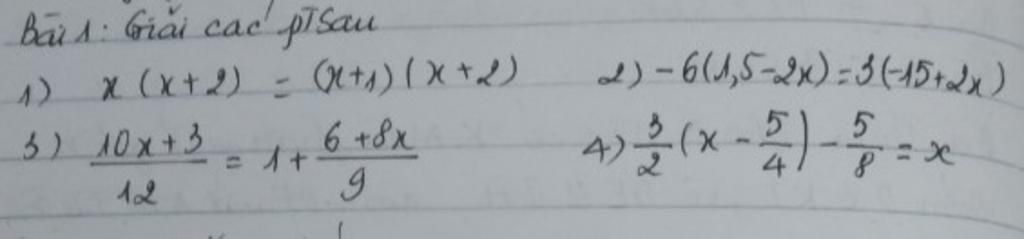 Bài 1: Giải các pT sau
1) x (x+2) = (x+1) (x+2) 2) -6(1,5-2x) = 3(-15+2x)
3) \frac{10x+3}{12} = 1 + \frac{6+8x}{9} 4) \frac{3}{2} (x - \frac{5}{4}) - \frac{5}{8} = x